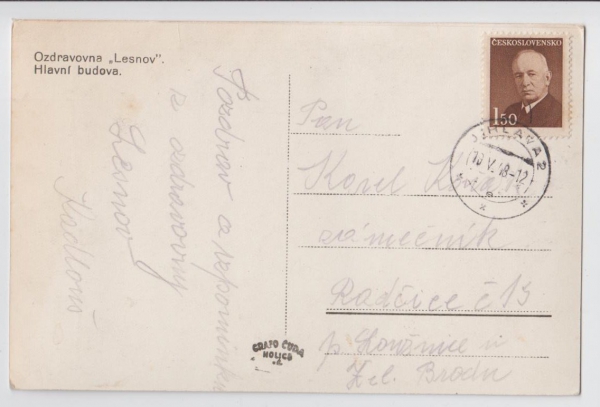 Ozdravovna „Lesnov".
Hlavní budova.
Pozdrav a vzpomínku
z ozdravovny
Lesnov
ČESKOSLOVENSKO
150
JIHLAVA 2
10.V.48-12
Pan
Karel
zámečník
Radčice č 15
p.
Žel. Brodu
GRAFO ČUDA
HOLICE